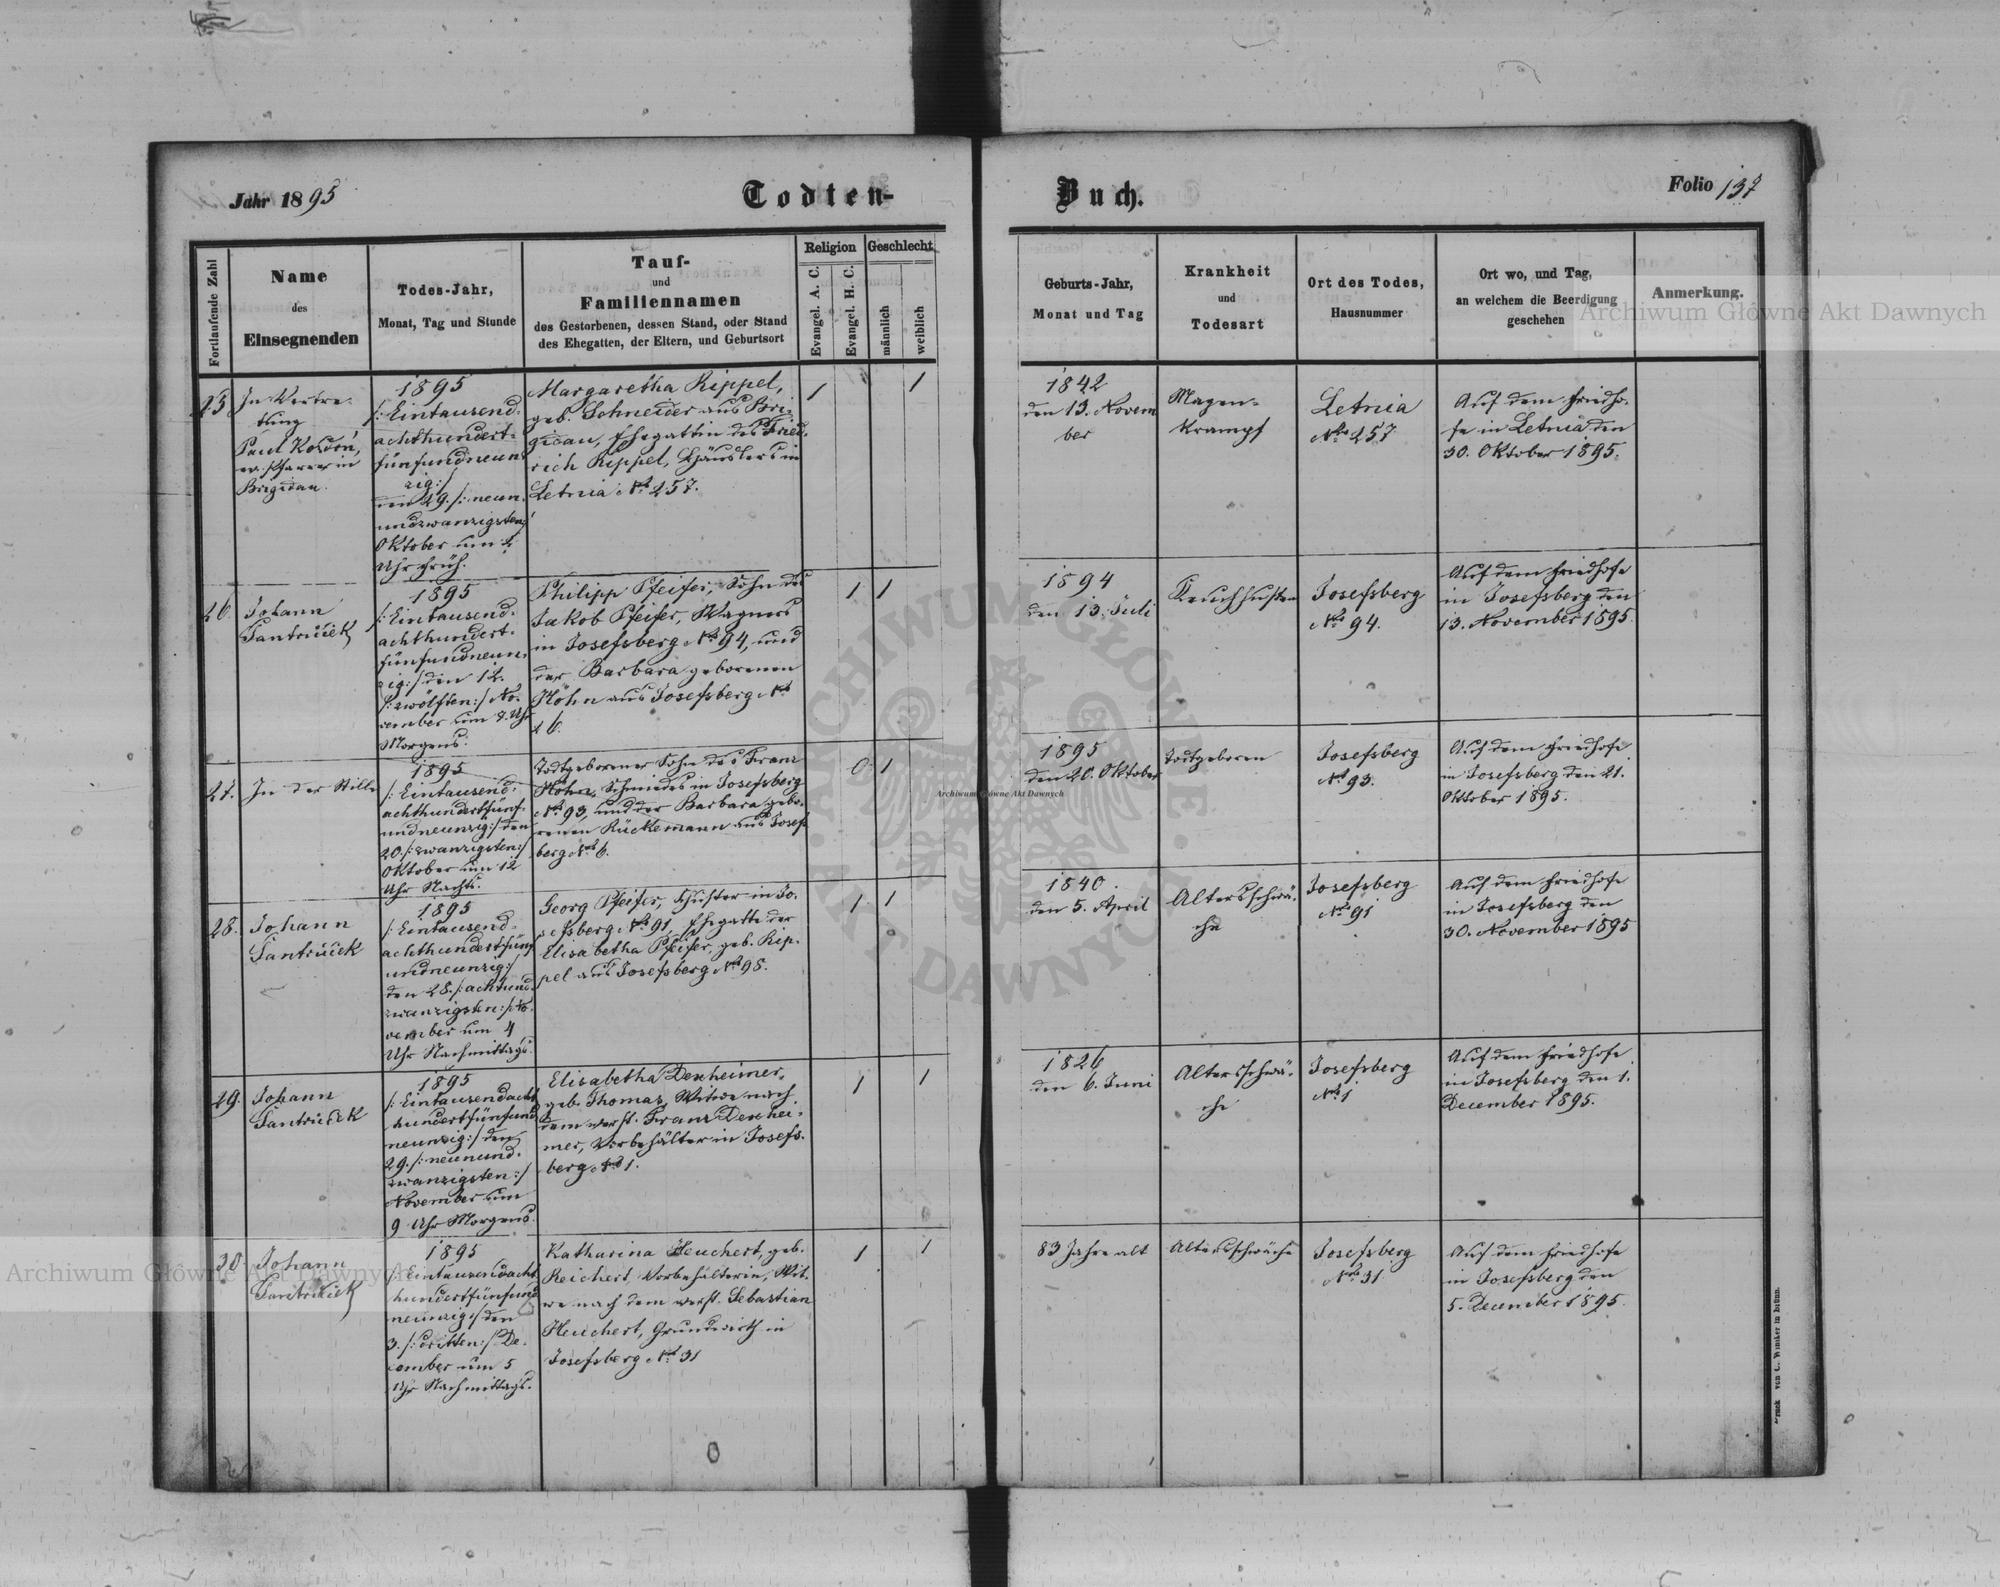 Jahr 1895
Todten-
Buch.
Folio 137
Fortlaufende Zahl
Name
des
Einsegnenden
Todes-Jahr,
Monat, Tag und Stunde
Tauf-
und
Familiennamen
des Gestorbenen, dessen Stand, oder Stand
des Ehegatten, der Eltern, und Geburtsort
Religion
Evangel. A. C.
Evangel. H. C.
Geschlecht
männlich
weiblich
Geburts-Jahr,
Monat und Tag
Krankheit
und
Todesart
Ort des Todes,
Hausnummer
Ort wo, und Tag,
an welchem die Beerdigung
geschehen
Anmerkung.
25
In Vertre-
tung
Paul Kozdoń,
ev. Pfarrer in
Brigidau.
1895
/: Eintausend-
achthundert-
fünfundneun
zig :/
den 29. /: neun-
undzwanzigsten :/
Oktober um
Uhr früh.
Margaretha Rippel,
geb. Schneider aus Bri-
gidau, Ehegattin des Fried-
rich Rippel, Häuslers in
Letnia No. 257.
1
1
1842
den 13. Novem
ber
Magen-
krampf
Letnia
No. 257
Auf dem Friedho-
fe in Letnia den
30. Oktober 1895.
26.
Johann
Jantuček
1895
/: Eintausend-
achthundert-
fünfundneun-
zig :/ den 12.
/: zwölften :/ No-
vember um 8. Uhr
Morgens.
Philipp Pfeifer, Sohn des
Jakob Pfeifer, Wagners
in Josefsberg No. 94, und
der Barbara geborenen
Höhn aus Josefsberg No.
1
1
1894
den 13. Juli
Keuchhusten
Josefsberg
No. 94.
Auf dem Friedhofe
in Josefsberg den
13. November 1895.
27.
In der Stille
1895
/: Eintausend-
achthundertfünf-
undneunzig :/ den
20. /: zwanzigsten :/
Oktober um 12
Uhr Nachts.
Todtgeborener Sohn des Franz
Höhn, Schmiedes in Josefsberg
No. 93, und der Barbara gebo-
renen Rückemann aus Josefs
berg No. 6.
0
1
1895
den 20. Oktober
Todtgeboren
Josefsberg
No. 93.
Auf dem Friedhofe
in Josefsberg den 21.
Oktober 1895.
28.
Johann
Jantuček
1895
/: Eintausend-
achthundertfünf
undneunzig :/
den 28. /: achtund-
zwanzigsten :/ No-
vember um 4
Uhr Nachmittags.
Georg Pfeifer, Schuster in Jo-
sefsberg No. 91, Ehegatte der
Elisabetha Pfeifer, geb. Rip-
pel aus Josefsberg No. 98.
1
1
1840.
den 5. April
Altersschwä-
che
Josefsberg
No. 91
Auf dem Friedhofe
in Josefsberg den
30. November 1895
29.
Johann
Jantuček
1895
/: Eintausendacht
hundertfünfund
neunzig :/ den
29. /: neunund-
zwanzigsten :/
November um
9 Uhr Morgens.
Elisabetha Dexheimer,
geb. Thomas, Witwe nach
dem verst. Franz Dexhei-
mer, Vorbehälter in Josefs-
berg No. 1.
1
1
1826
den 6. Juni
Altersschwä-
che
Josefsberg
No. 1
Auf dem Friedhofe
in Josefsberg den 1.
December 1895.
30
Johann
Jantuček
1895
/: Eintausendacht
hundertfünfund
neunzig :/ den
3. /: dritten :/ De-
cember um 5
Uhr Nachmittags.
Katharina Heuchert, geb.
Reichert, Vorbehälterin, Wit-
we nach dem verst. Sebastian
Heuchert, Grundwirth in
Josefsberg No. 31
1
1
83 Jahre alt
Altersschwäche
Josefsberg
No. 31
Auf dem Friedhofe
in Josefsberg den
5. December 1895.
Druck von C. Winiker in Brünn.
Archiwum Główne Akt Dawnych
Archiwum Główne Akt Dawnych
Archiwum Główne Akt Dawnych
ARCHIWUM GŁÓWNE
AKT DAWNYCH